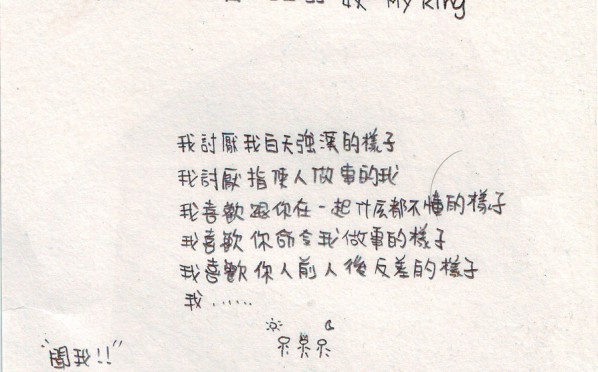 奴 My King
我討厭我白天強漢的樣子
我討厭指使人做事的我
我喜歡跟你在一起什広都不懂的樣子
我喜歡你命令我做事的樣子
我喜歡你人前人後反差的樣子
我......
"聞我!!"